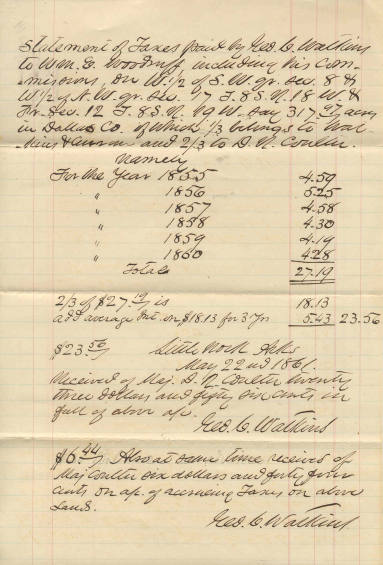 Statement of Taxes paid by Geo. C. Watkins
to Wm. E. Woodruff, including his com-
missions, on W. 1/2 of S. W. qr. Sec. 8 &
W 1/2 of N. W. qr. Sec. 17 T. 8 S. N. 18 W. &
Fr. Sec. 12 T. 8 S. N. 19 W. say 317 acres
in Dallas Co. of which 1/3 belongs to Wat-
kins & and 2/3 to D. N. Coulter.
namely
For the Year 1855 4.59
" 1856 5.25
" 1857 4.58
" 1858 4.30
" 1859 4.19
" 1860 4.28
Totals 27.19
2/3 of $27.19 is 18.13
add average Int. on $18.13 for 3 Yrs 5.43 23.56
$23.56 Little Rock Arks
May 22nd 1861.
Received of Maj. D. N. Coulter twenty
three dollars and fifty six cents in
full of above a/c.
Geo. C. Watkins
$6.44 Also at same time received of
Maj Coulter six dollars and forty four
cents on a/c. of accruing Taxes on above
Lands.
Geo. C. Watkins